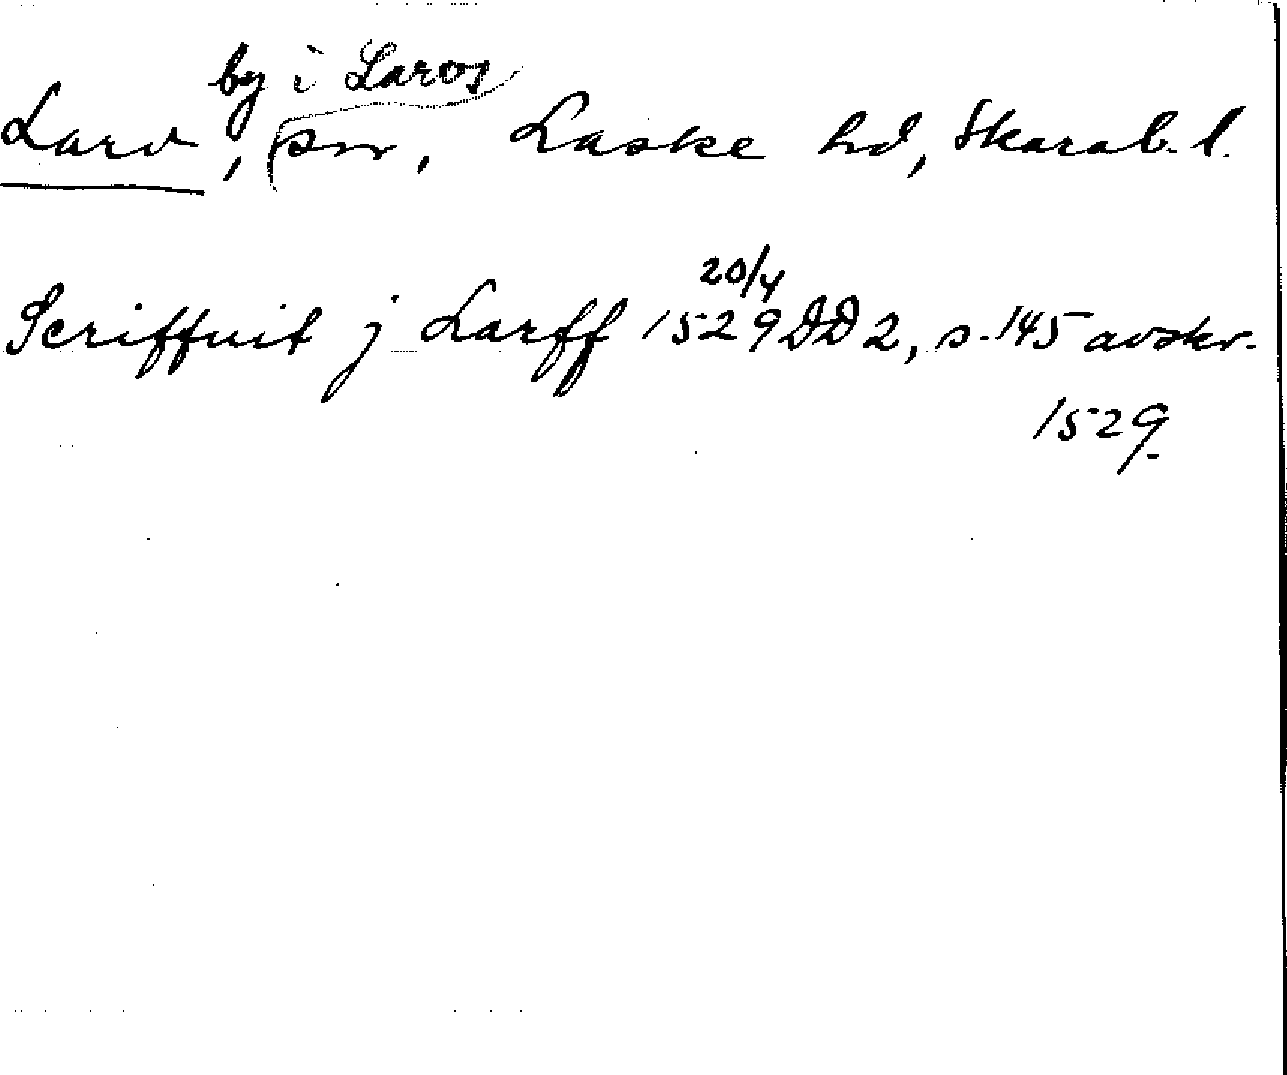 by i Larvs
Larv, sn, Laske hd, Skarab. l.
20/4
Scriffuit j Larff 1529 DD 2, s. 145 avskr.
1529.